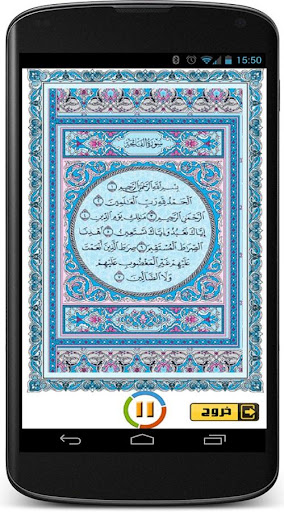 15:50
سورة الفاتحة
بسم الله الرحمن الرحيم ١
الحمد لله رب العلمين ٢
الرحمن الرحيم ٣ ملك يوم الدين ٤
إياك نعبد وإياك نستعين ٥ اهدنا
الصرط المستقيم ٦ صرط الذين أنعمت
عليهم غير المغضوب عليهم
ولا الضالين ٧
خروج